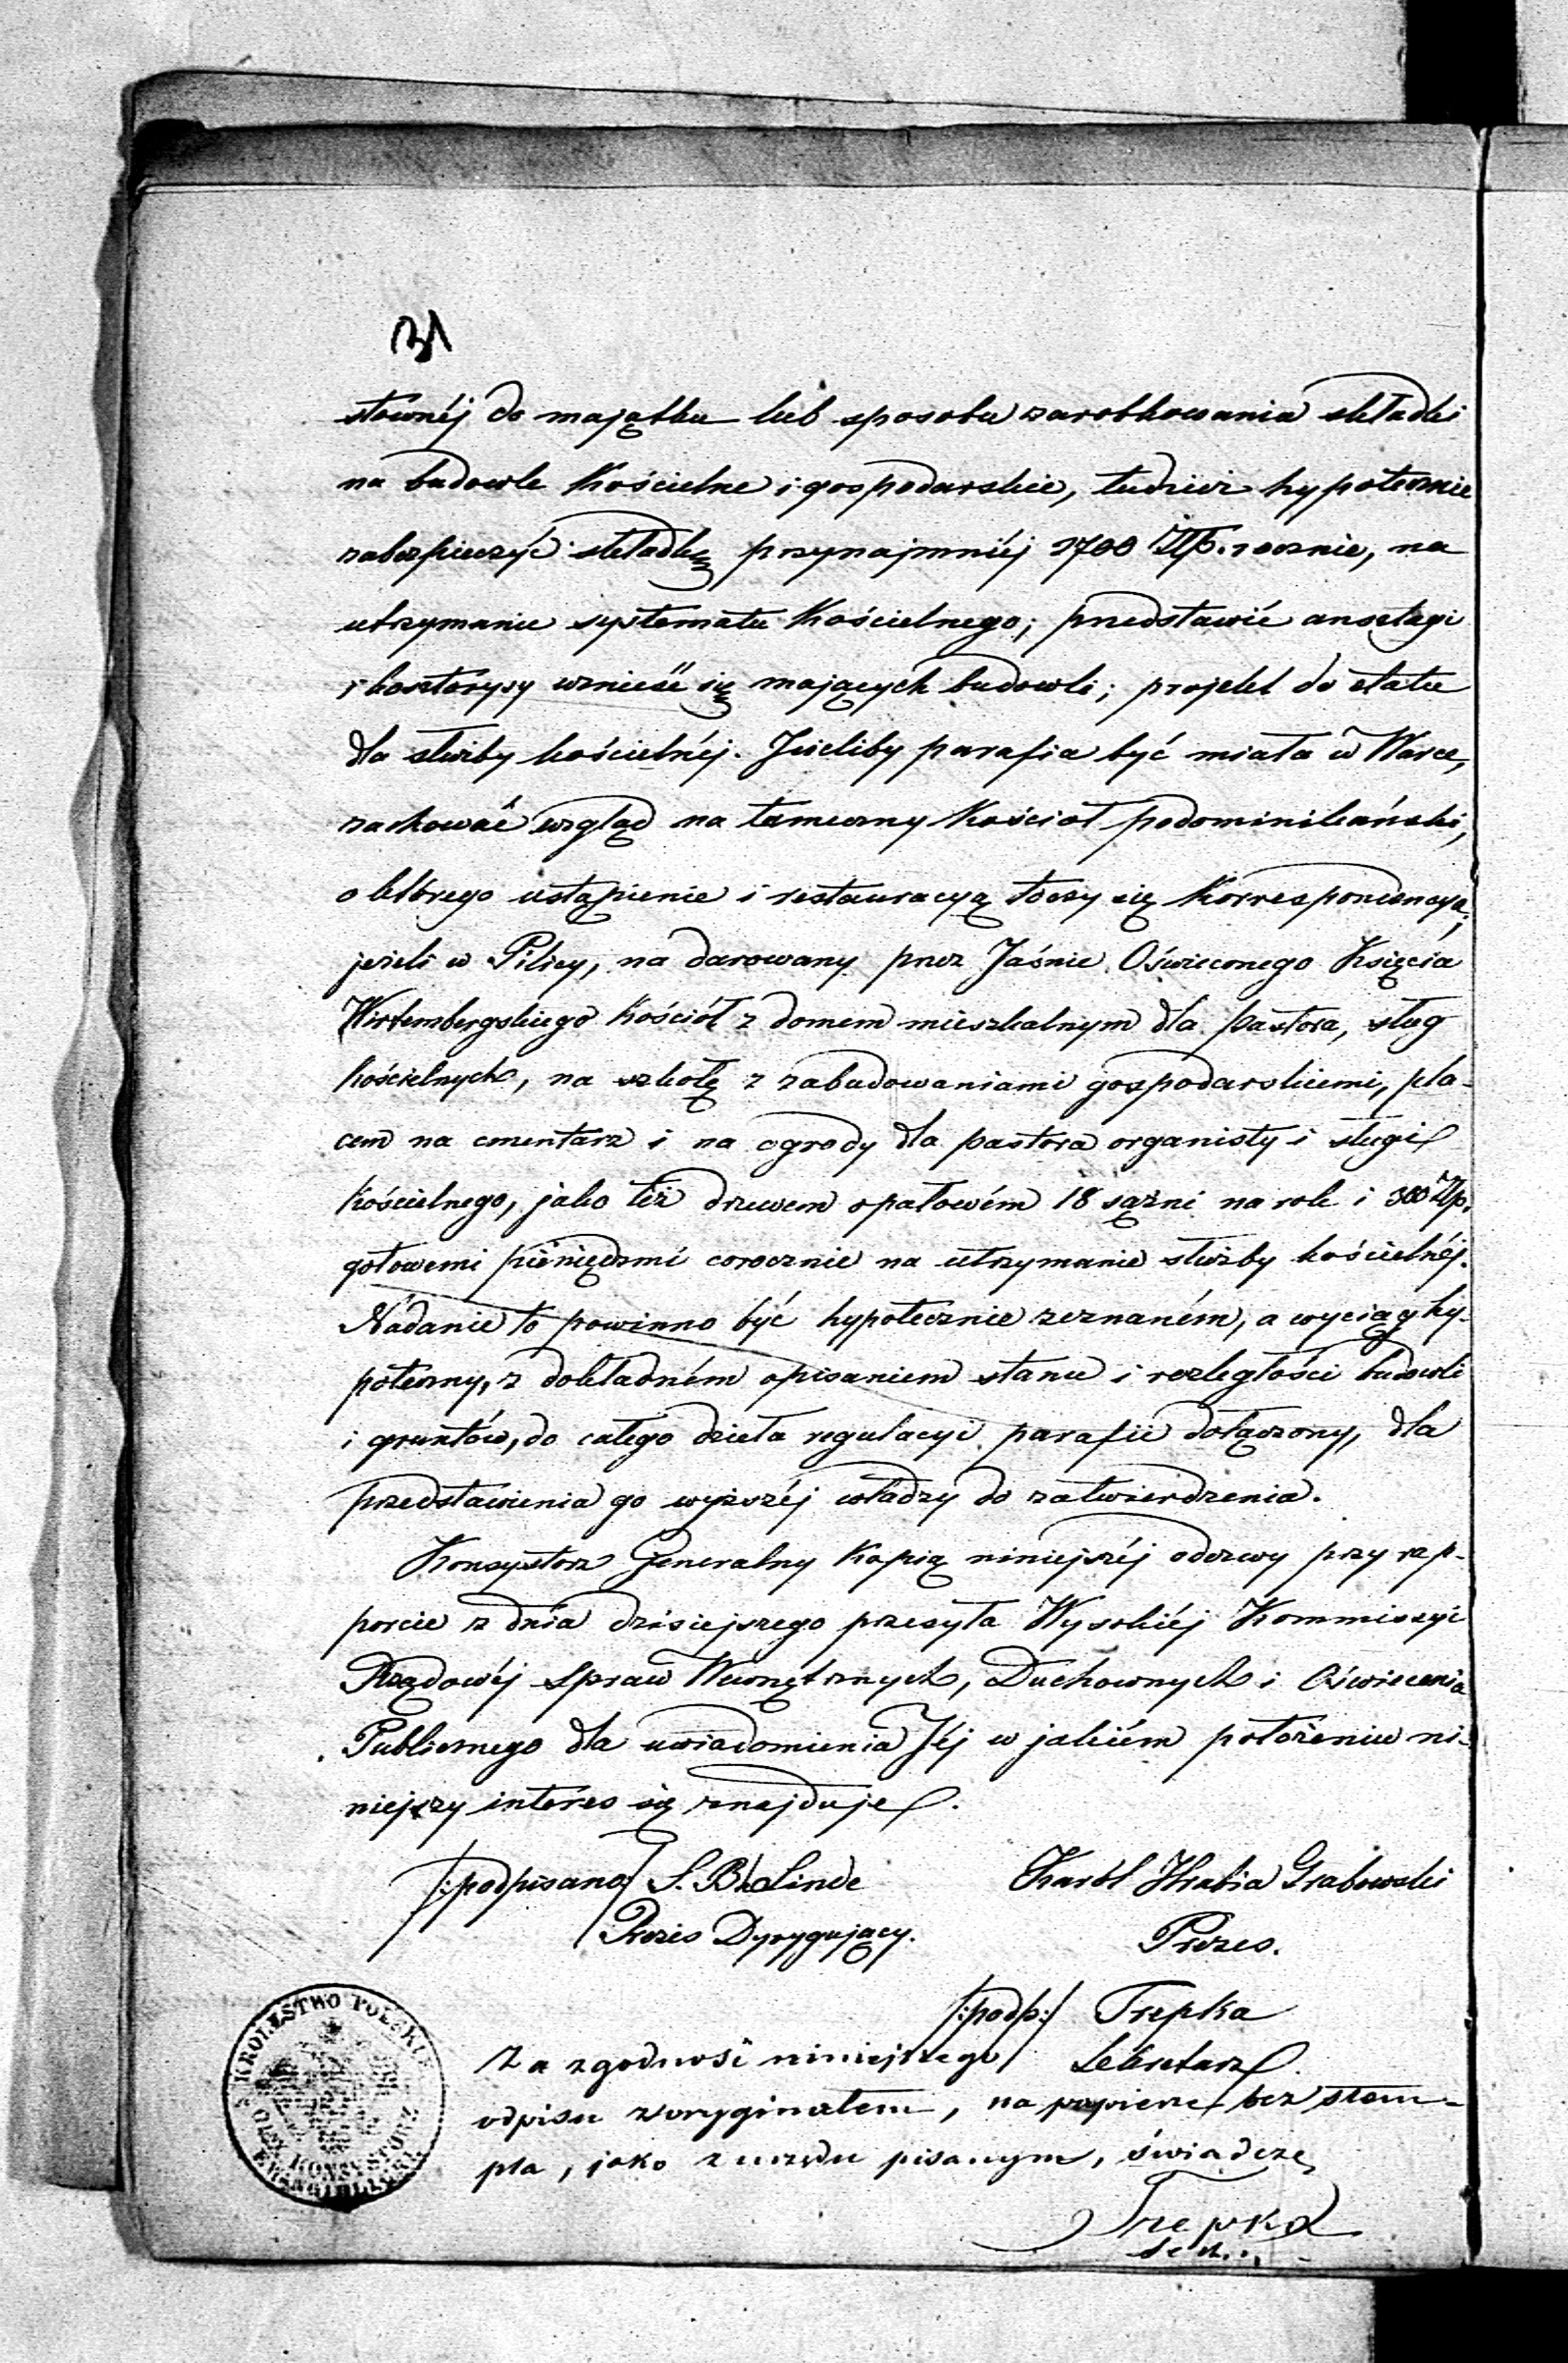 31
stownéj do majątku lub sposobu zarobkowania składki
na budowle Kościelne i gospodarskie, tudzież hypotecznie
zabezpieczyć składkę przynajmniéj 2700 Złp. rocznie, na
utrzymanie systematu Kościelnego; przedstawić anszlagi
i kosztorysy wznieść się mających budowli; projekt do etatu
dla służby kościelnéj. Jeżeliby parafia być miała w Warce,
zachować wzgląd na tameczny Kościół podominikański,
o którego ustąpienie i restauracyą toczy się Korrespondencya;
jeżeli w Pilicy, na darowany przez Jaśnie Oświeconego Księcia
Wirtembergskiego Kościół z domem mieszkalnym dla pastora, sług
kościelnych, na szkołę z zabudowaniami gospodarskiemi, pla-
cem na cmentarz i na ogrody dla pastora organisty i sługi
Kościelnego, jako też drzewem opałowém 18 sążni na rok i 300 Złp.
gotowemi pieniędzmi corocznie na utrzymanie służby kościelnéj.
Nadanie to powinno być hypotecznie zeznaném, a wyciąg hy-
poteczny, z dokładném opisaniem stanu i rozległości budowli
i gruntów, do całego dzieła regulacyi parafii dołączony, dla
przedstawienia go wyższéj władzy do zatwierdzenia.
Konsystorz Generalny Kopią niniejszéj odezwy przy rap-
porcie z dnia dzisiejszego przesyła Wysokiéj Kommissyi
Rządowéj Spraw Wewnętrznych, Duchownych i Oświecenia
Publicznego dla uwiadomienia Jéj w jakiém położeniu ni-
niejszy interes się znajduje.
/:podpisano/ S. B. Linde Karól Hrabia Grabowski
Prezes Dyrygujący. Prezes.
/:podp:/ Trepka
Sekretarz
Za zgodność niniejszego
odpisu z oryginałem, na papierze bez stem-
pla, jako z urzędu pisanym, świadczę
Trepka
Sekr.
KROLESTWO POLSKIE
GLNY KONSYSTORZ
EWANGIELICKI